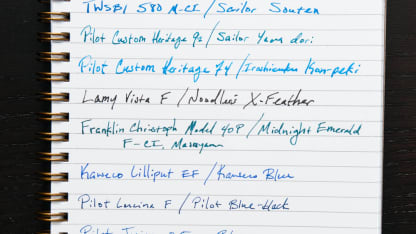 TWSBI 580 M-CI / Sailor Souten
Pilot Custom Heritage 92 / Sailor Yama dori
Pilot Custom Heritage 74 / Iroshizuku Kon-peki
Lamy Vista F / Noodler's X-Feather
Franklin Christoph Model 40P / Midnight Emerald
F-CI, Masuyama
Kaweco Lilliput EF / Kaweco Blue
Pilot Lucina F / Pilot Blue-black
Pilot